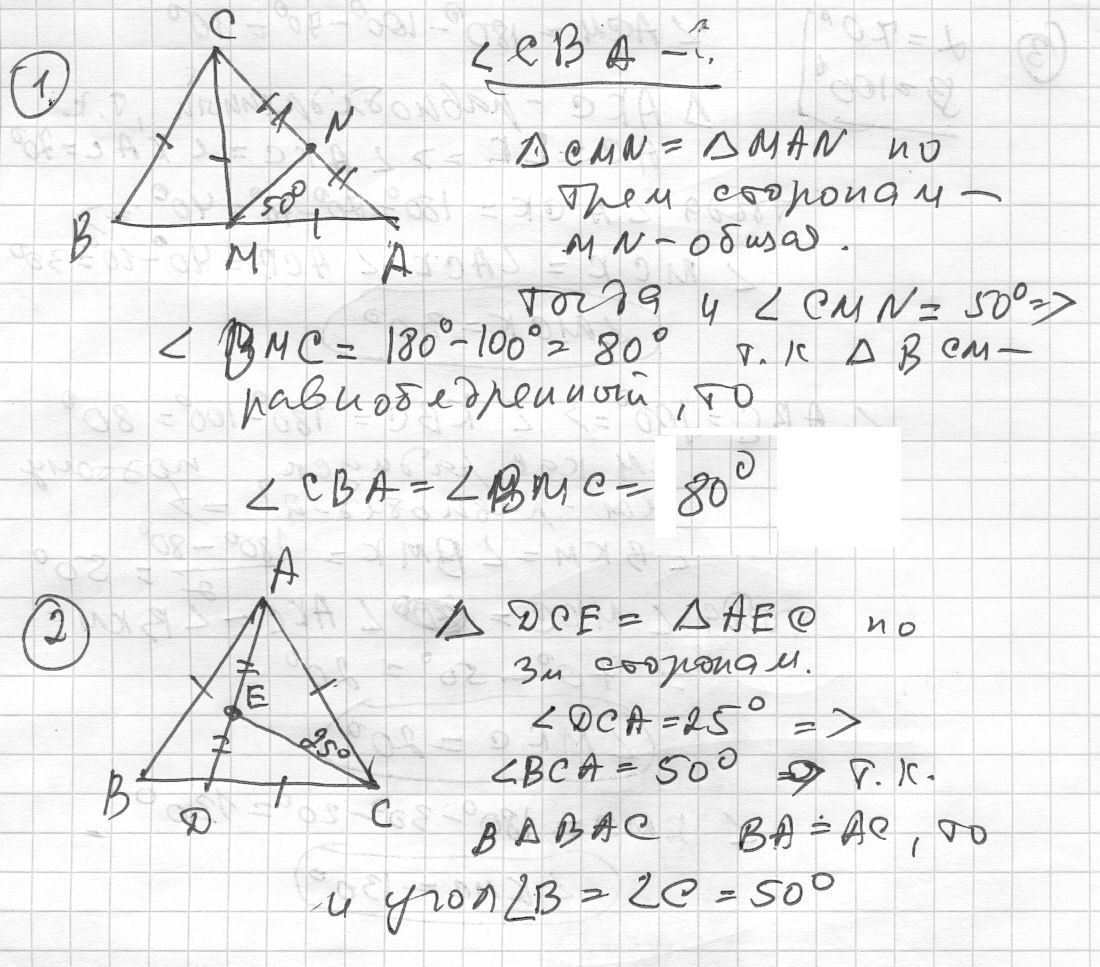 1.
C
N
50°
B
M
A
∠CBA - ?
△CMN = △MAN по
трем сторонам –
MN - общая.
тогда и ∠CMN = 50° =>
∠BMC = 180° - 100° = 80° т.к △BCM –
равнобедренный, то
∠CBA = ∠BMC = 80°
2
A
E
25°
B
D
C
△DCE = △AEC по
3м сторонам.
∠DCA = 25° =>
∠BCA = 50° => т.к.
в △BAC BA = AC, то
и угол ∠B = ∠C = 50°